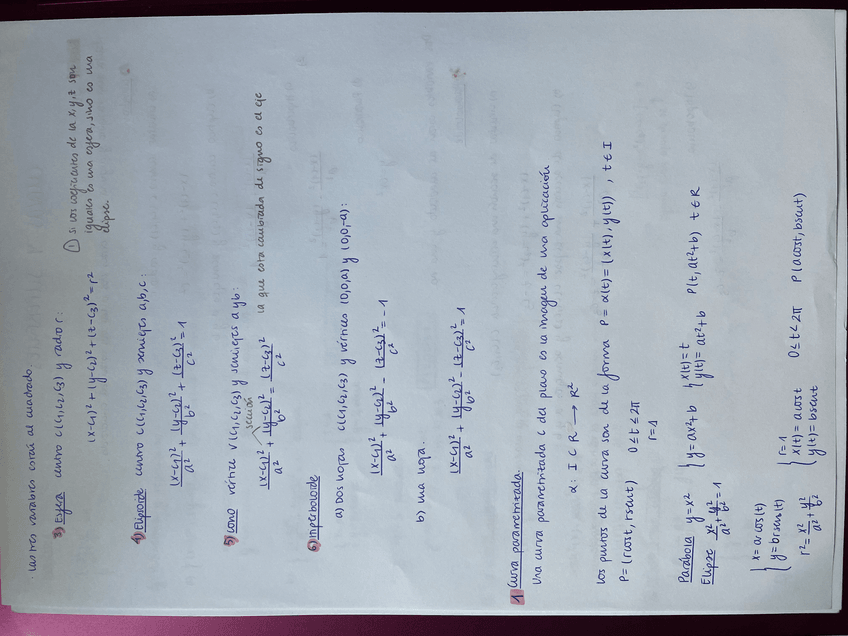 · Las tres variables están al cuadrado.
3) Esfera centro C(c₁,c₂,c₃) y radio r:
(x-c₁)² + (y-c₂)² + (z-c₃)² = r²
① si los coeficientes de la x,y,z son
iguales es una esfera, sino es una
elipse.
4) Elipsoide centro C(c₁,c₂,c₃) y semiejes a,b,c:
(x-c₁)²/a² + (y-c₂)²/b² + (z-c₃)²/c² = 1
5) Cono vértice V(c₁,c₂,c₃) y semiejes a y b:
sección
(x-c₁)²/a² + (y-c₂)²/b² = (z-c₃)²/c²
la que esta cambiada de signo es el eje
6) Hiperboloide
a) Dos hojas C(c₁,c₂,c₃) y vértices (0,0,a) y (0,0,-a)
(x-c₁)²/a² + (y-c₂)²/b² - (z-c₃)²/c² = -1
b) Una hoja.
(x-c₁)²/a² + (y-c₂)²/b² - (z-c₃)²/c² = 1
1 Curva parametrizada.
Una curva parametrizada C del plano es la imagen de una aplicación
α: I ⊂ R → R²
Los puntos de la curva son de la forma P = α(t) = (x(t), y(t)), t ∈ I
P = (r cost, r sent) 0 ≤ t ≤ 2π
r=1
Parábola y = x² { y = ax² + b { x(t) = t P(t, at²+b) t ∈ R
y(t) = at² + b
Elipse x²/a² + y²/b² = 1
r=1
{ x = a r cos(t) { x(t) = a cost 0 ≤ t < 2π P(a cost, b sent)
y = b r sen(t) y(t) = b sent
r² = x²/a² + y²/b²